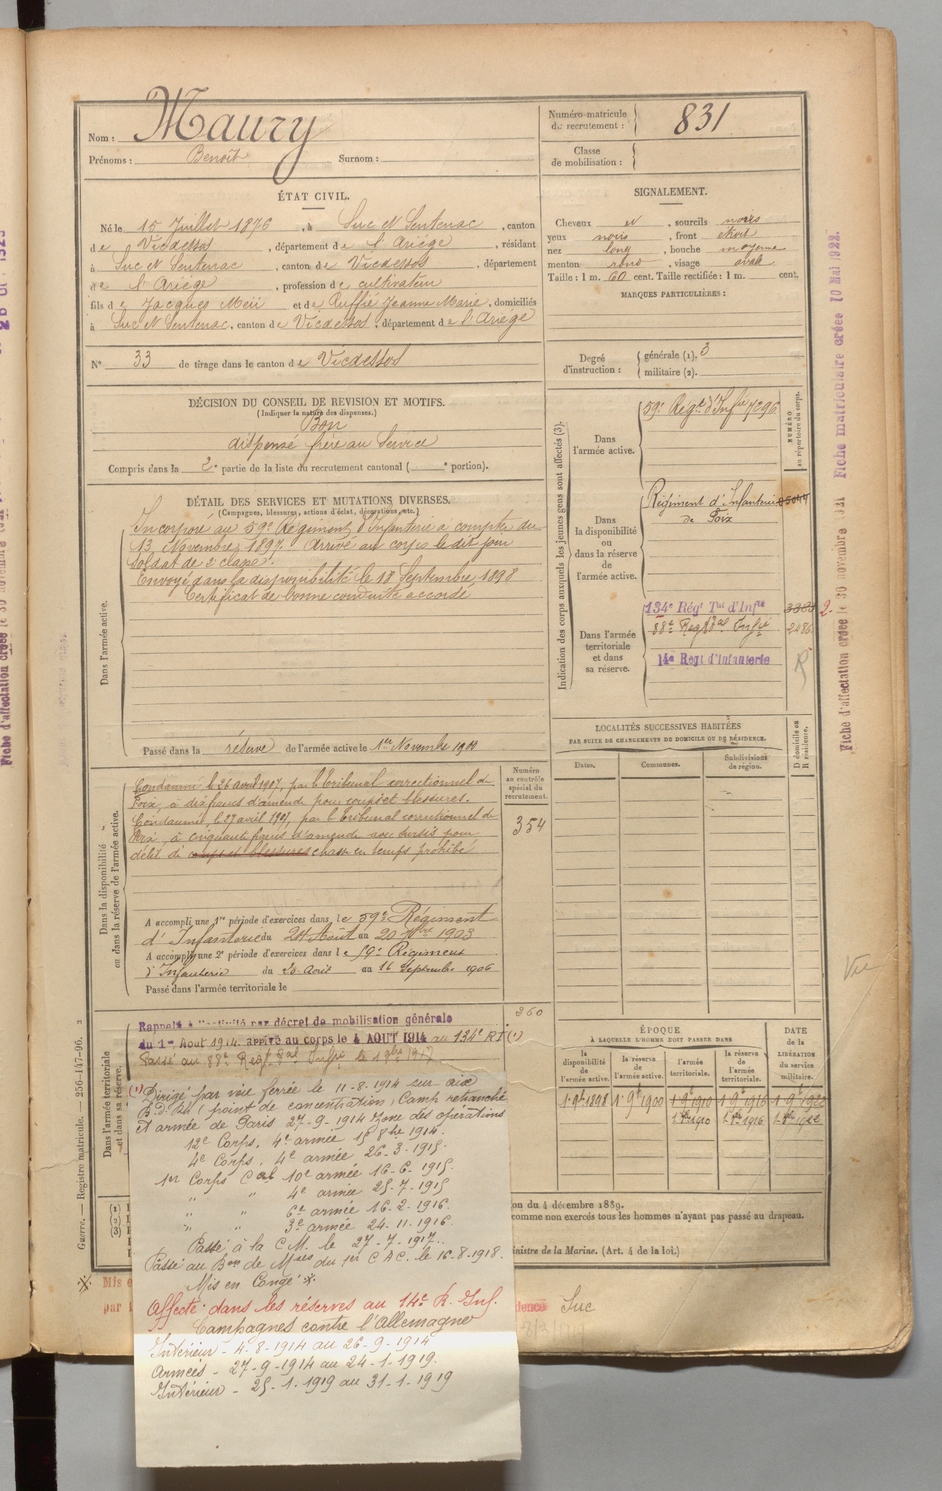 Nom : Maury
Prénoms : Benoît Surnom :
Numéro matricule
du recrutement : 831
Classe
de mobilisation :
ÉTAT CIVIL.
Né le 15 Juillet 1876, à Suc et Sentenac, canton
de Vicdessos, département de l'Ariège, résidant
à Suc et Sentenac, canton de Vicdessos, département
de l'Ariège, profession de cultivateur
fils de Jacques et de Ruffié Jeanne Marie, domiciliés
à Suc et Sentenac, canton de Vicdessos, département de l'Ariège
N° 33 de tirage dans le canton de Vicdessos
SIGNALEMENT.
Cheveux et, sourcils noirs
yeux noirs, front étroit
nez long, bouche moyenne
menton rond, visage ovale
Taille : 1 m. 60 cent. Taille rectifiée : 1 m. cent.
MARQUES PARTICULIÈRES :
Degré
d'instruction :
générale (1). 3
militaire (2).
DÉCISION DU CONSEIL DE REVISION ET MOTIFS.
(Indiquer la nature des dispenses.)
Bon
dispensé frère au Service
Compris dans la 2e partie de la liste du recrutement cantonal ( e portion).
DÉTAIL DES SERVICES ET MUTATIONS DIVERSES.
(Campagnes, blessures, actions d'éclat, décorations, etc.)
Dans l'armée active.
Incorporé au 59e Régiment d'Infanterie à compter du
13 Novembre 1897. Arrivé au corps le dit jour
Soldat de 2e classe.
Envoyé dans la disponibilité le 18 Septembre 1898
Certificat de bonne conduite accordé
Passé dans la réserve de l'armée active le 1er Novembre 1900
Dans la disponibilité
ou dans la réserve de l'armée active.
Condamné le 26 avril 1907, par le tribunal correctionnel de
Foix, à dix francs d'amende pour coups et blessures.
Condamné, le 27 avril 1901, par le tribunal correctionnel de
Foix, à cinquante francs d'amende avec sursis pour
délit de coups et blessures chasse en temps prohibé
Numéro
au contrôle
spécial du
recrutement.
354
A accompli une 1re période d'exercices dans le 59e Régiment
d'Infanterie du 24 Août au 20 7bre 1903
A accompli une 2e période d'exercices dans le 59e Régiment
d'Infanterie du 20 Août au 16 Septembre 1906
Passé dans l'armée territoriale le
Dans l'armée territoriale
et dans sa réserve.
360
Rappelé à l'activité par décret de mobilisation générale
du 1er Aout 1914. ARRIVÉ au corps le 4 AOUT 1914 au 134e RI (1)
Passé au 88e Régt Tal Infie le 1917
(1) Dirigé par voie ferrée le 11-8-1914 sur
point de concentration, Camp retranché
et armée de Paris 27-9-1914 Zone des opérations
12e Corps. 4e armée 15 8bre 1914.
4e Corps. 4e armée 26-3-1915.
1er Corps Cal 10e armée 16-6-1915.
" " 4e armée 25-7-1915
" " 6e armée 16-2-1916.
" " 3e armée 24-11-1916.
Passé à la C.M. le 27-7-1917.
Passé au Bon de Mses du 1er C A C. le 16-8-1918.
Mis en Congé *.
Affecté dans les réserves au 14e R. Inf.
Campagnes contre l'Allemagne
Intérieur - 4-8-1914 au 26-9-1914
Armées - 27-9-1914 au 24-1-1919.
Intérieur - 25-1-1919 au 31-1-1919
Indication des corps auxquels les jeunes gens sont affectés (3).
NUMÉRO
au répertoire du corps.
Dans
l'armée active.
59e Régt d'Infie 7296
Dans
la disponibilité
ou
dans la réserve
de
l'armée active.
Régiment d'Infanterie 05044
de Foix
Dans l'armée
territoriale
et dans
sa réserve.
134e Régt Tal d'Infie
88e Régt Tal Infie 2486
14e Regt d'Infanterie
R
LOCALITÉS SUCCESSIVES HABITÉES
PAR SUITE DE CHANGEMENTS DE DOMICILE OU DE RÉSIDENCE.
Dates. Communes. Subdivisions
de région.
D domicile ou
R résidence.
Vu
ÉPOQUE
À LAQUELLE L'HOMME DOIT PASSER DANS
la
disponibilité
de
l'armée active.
la réserve
de
l'armée active.
l'armée
territoriale.
la réserve
de
l'armée
territoriale.
DATE
de la
LIBÉRATION
du service
militaire.
1. 9bre 1898 1. 9bre 1900 1. 9bre 1910 1. 9bre 1916 1. 9bre 1922
on du 4 décembre 1889.
comme non exercés tous les hommes n'ayant pas passé au drapeau.
inistre de la Marine. (Art. 4 de la loi.)
Suc
Mis e
par
Guerre. — Registre matricule. — 256-147-96.
Fiche d'affectation créée le 30 novembre 1921 Fiche matriculaire créée 10 Mai 1922.
Fiche d'affectation créée le 30 novembre